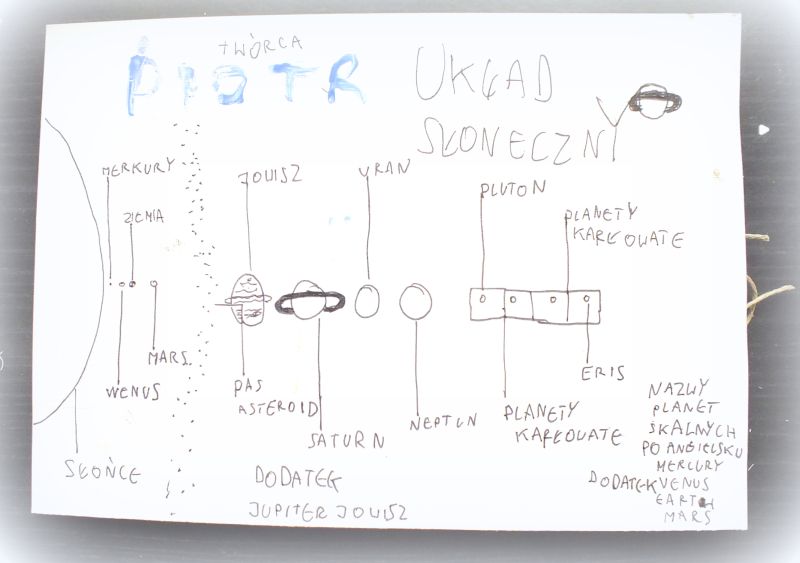 TWÓRCA
PIOTR
UKŁAD
SŁONECZNY
MERKURY
ZIEMIA
JOUISZ
URAN
PLUTON
PLANETY
KARŁOWATE
MARS
WENUS
PAS
ASTEROID
SATURN
NEPTUN
PLANETY
KARŁOUATE
ERIS
SŁOŃCE
DODATEK
JUPITER JOUISZ
NAZWY
PLANET
SKALNYCH
PO ANGIELSKU
MERCURY
DODATEK VENUS
EARTH
MARS